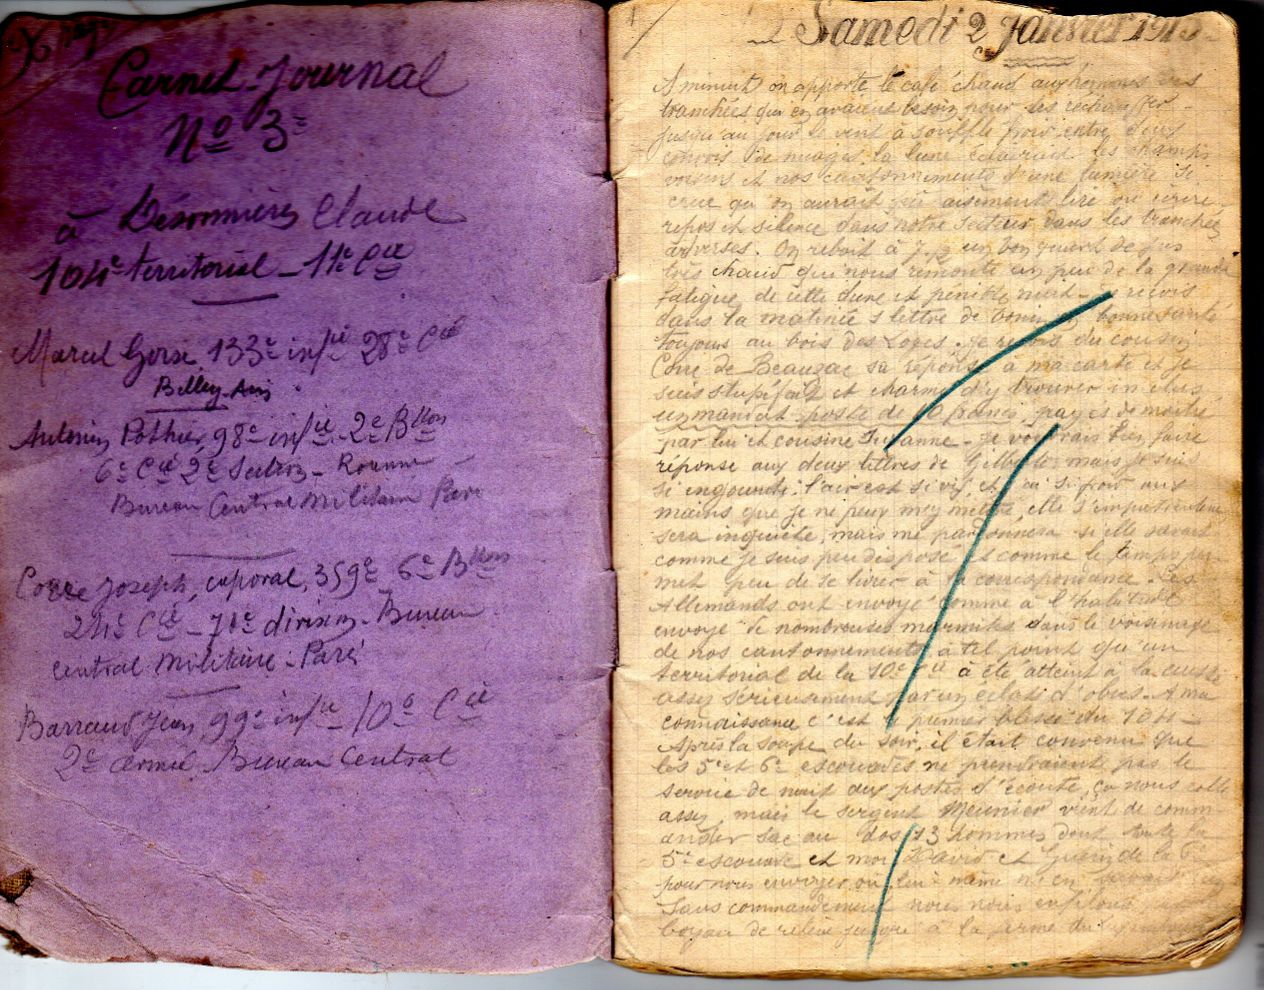 96 pages
Carnet-Journal
No 3e
à Désormières Claude
104e territorial - 11e Cie
Marcel Gorse, 133e infie 28e Cie
Belley-Ain
Antonin Pothier, 98e infie - 2e Bllon
6e Cie 2e Section - Roanne
Bureau Central Militaire Paris
Corre Joseph, caporal, 359e 6e Bllon
24e Cie - 71e division - Bureau
central militaire - Paris
Barraud Jean, 99e infie - 10e Cie
2e armée, Bureau Central
1
Samedi 2 Janvier 1915
A minuit on apporte le café chaud aux hommes des
tranchées qui en avaient besoin pour les réchauffer.
Jusqu'au jour le vent à soufflé froid entre deux
convois de nuages, la lune éclairait les champs
voisins et nos cantonnements d'une lumière si
crue qu'on aurait pu aisément lire ou écrire,
repos et silence dans notre secteur dans les tranchées
adverses. On reboit à 7h un bon quart de jus
très chaud qui nous remonte un peu de la grande
fatigue de cette dure et pénible nuit. reçois
dans la matinée 1 lettre de bonne santé
toujours au bois des Loges. Je reçois du cousin
Corre de Beauzac sa réponse à ma carte et je
suis stupéfait et charmé d'y trouver inclus
un mandat poste de 10 francs, payés de moitié
par lui et cousine Suzanne. Je voudrais bien faire
réponse aux deux lettres de Gilberte mais je suis
si engourdi, l'air est si vif, et j'ai si froid aux
mains que je ne peux m'y mettre, elle s'impatientera
sera inquiète, mais me pardonnera si elle savait
comme je suis peu disposé et comme le temps per
met peu de se livrer à la correspondance. Les
Allemands ont envoyé comme à l'habitude
envoyé de nombreuses marmites dans le voisinage
de nos cantonnements à tel point qu'un
territorial de la 10e Cie à été atteint à la cuisse
assez sérieusement par un éclat d'obus. A ma
connaissance c'est le premier blessé du 104e
Après la soupe du soir, il était convenu que
les 5e et 6e escouades ne prendraient pas le
service de nuit aux postes d'écoute, ça nous colle
assez, mais le sergent Meunier vient de comm
ander sac au dos 13 hommes dont toute la
5e escouade et moi David et de la 6e
pour nous envoyer où lui-même n'en
Sans commandement nous nous enfilons
boyau de relève jusque à la ferme du